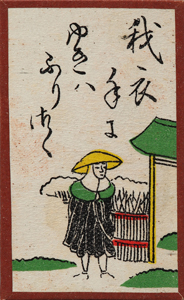 我衣
手に
ゆきハ
ふりつゝ